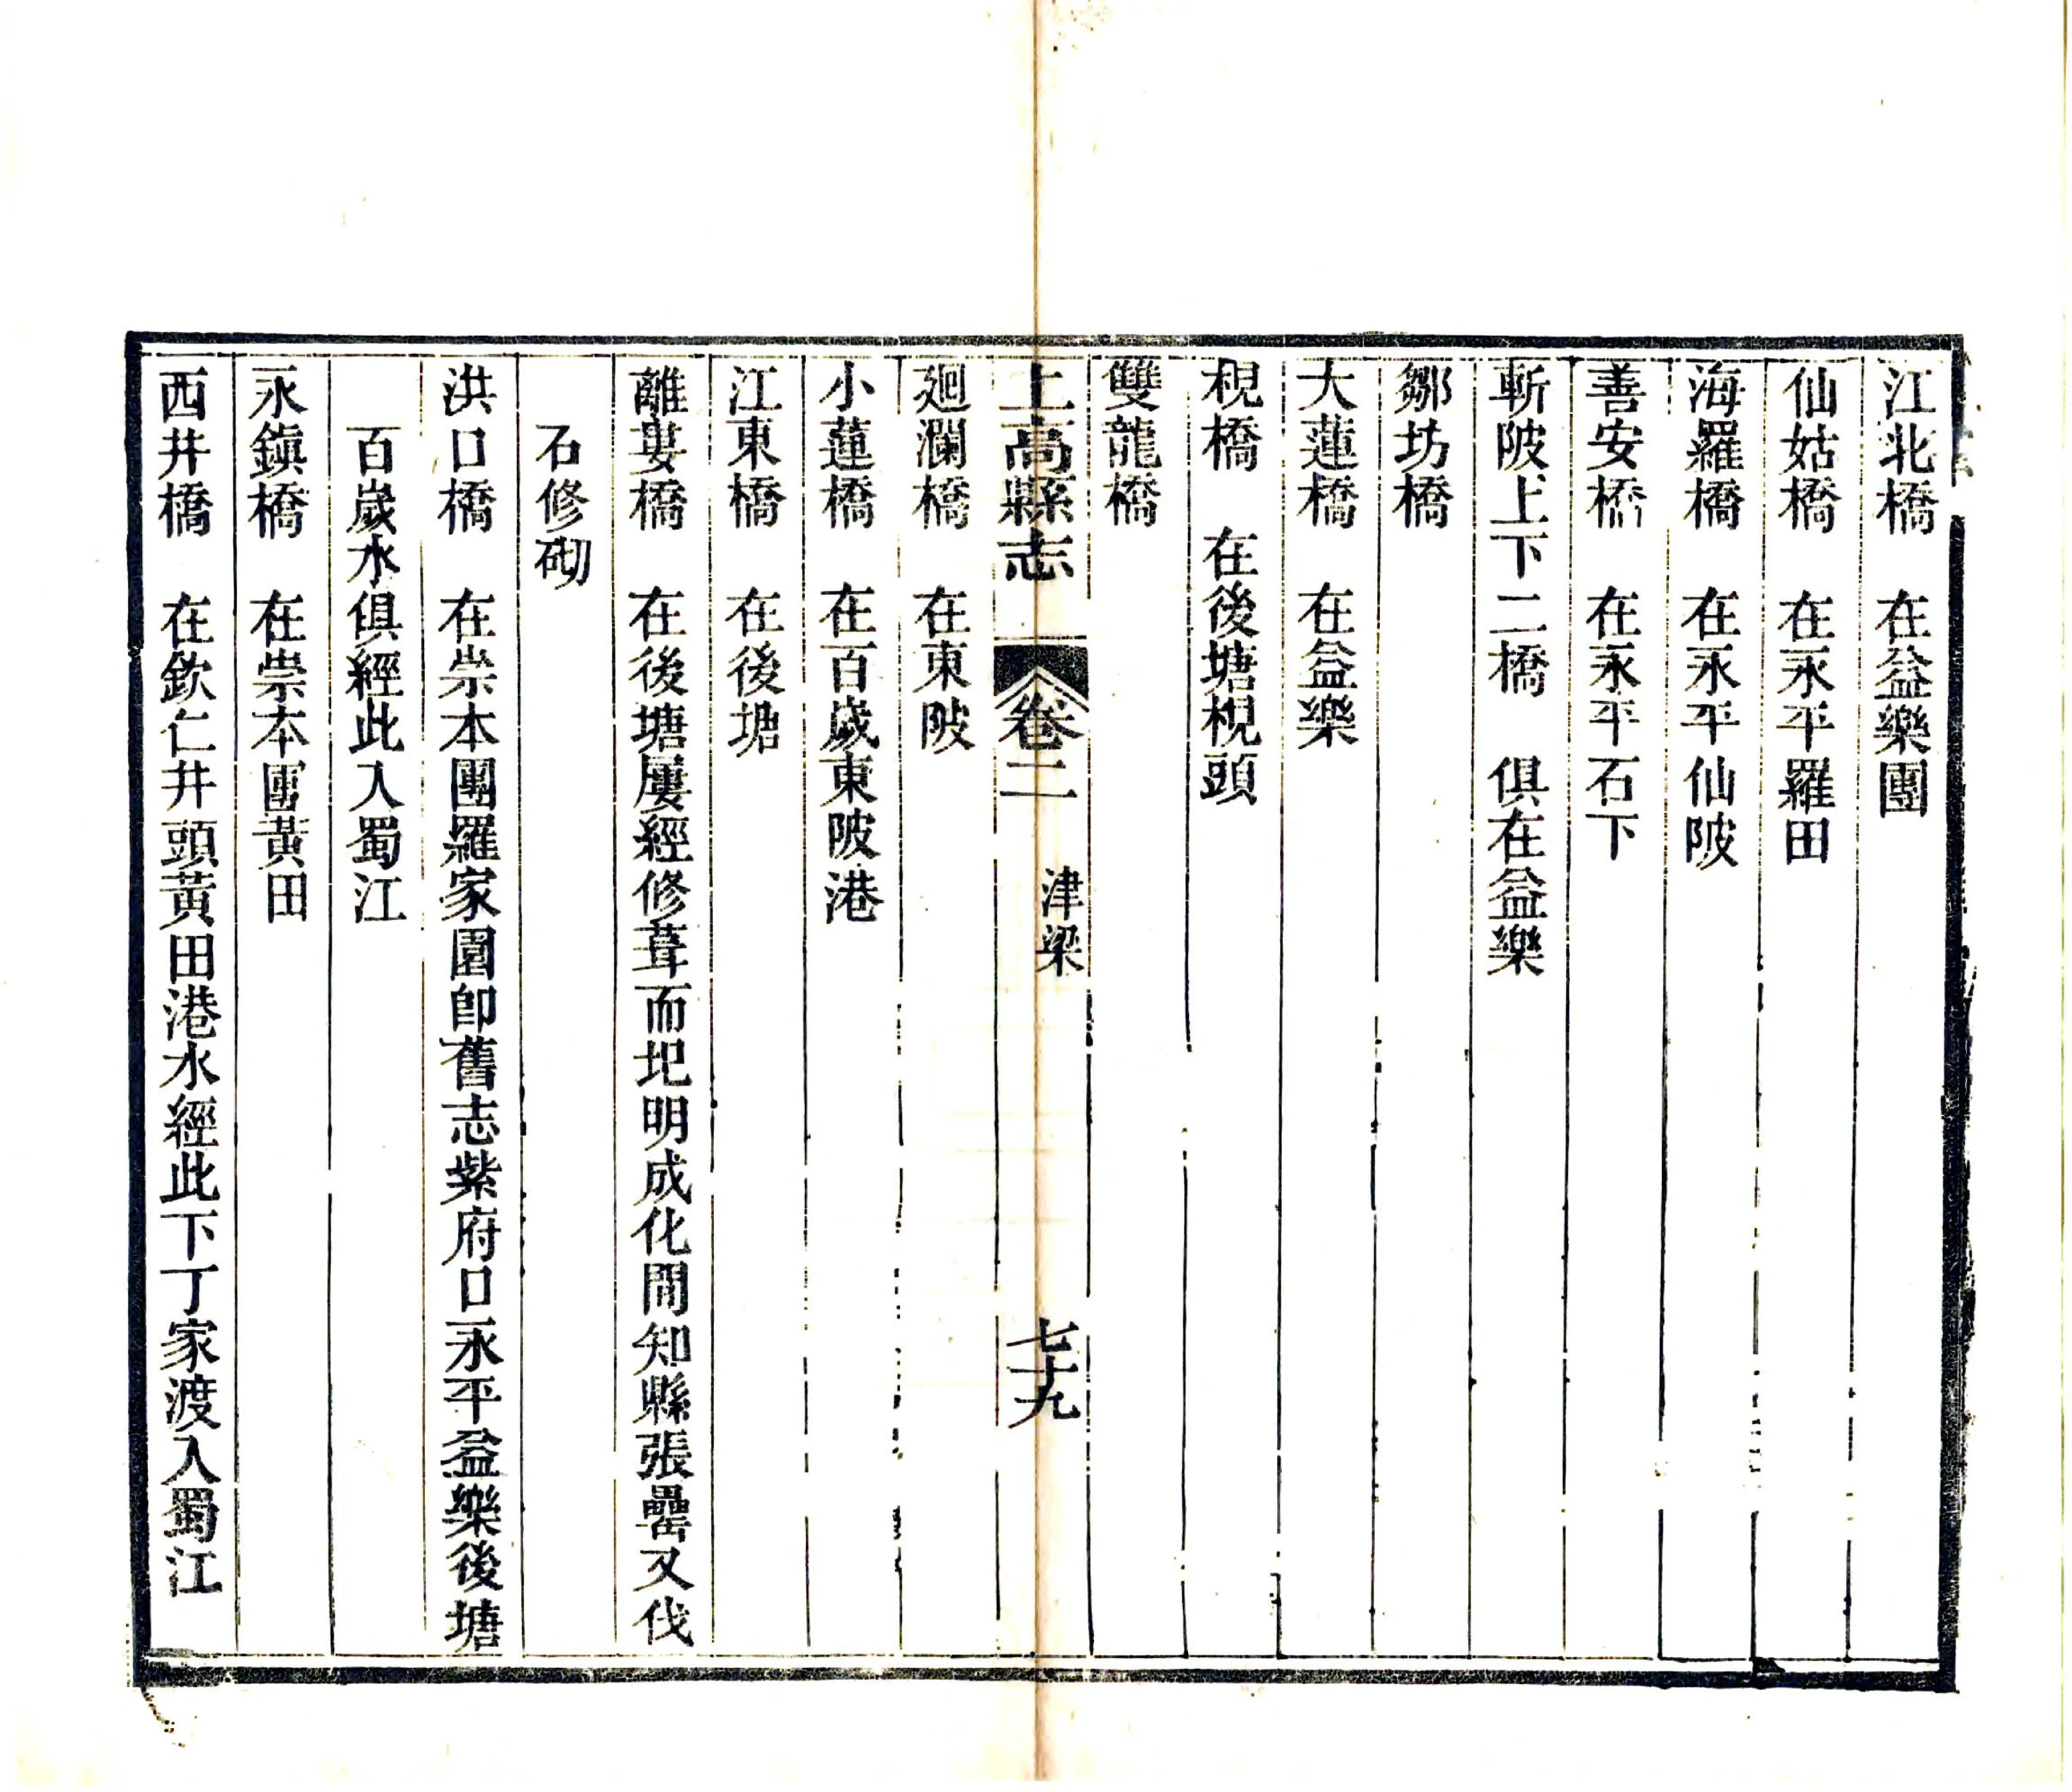 江北橋　在益樂團
仙姑橋　在永平羅田
海羅橋　在永平仙陂
善安橋　在永平石下
斬陂上下二橋　俱在益樂
鄒坊橋
大蓮橋　在益樂
梘橋　在後塘梘頭
雙龍橋
上高縣志　卷二　津梁　七十九
廻瀾橋　在東陂
小蓮橋　在百歲東陂港
江東橋　在後塘
離婁橋　在後塘屢經修葺而圯明成化間知縣張罍又伐
石修砌
洪口橋　在崇本團羅家園卽舊志紫府口永平益樂後塘
百歲水俱經此入蜀江
永鎭橋　在崇本團黃田
西井橋　在欽仁井頭黃田港水經此下丁家渡入蜀江